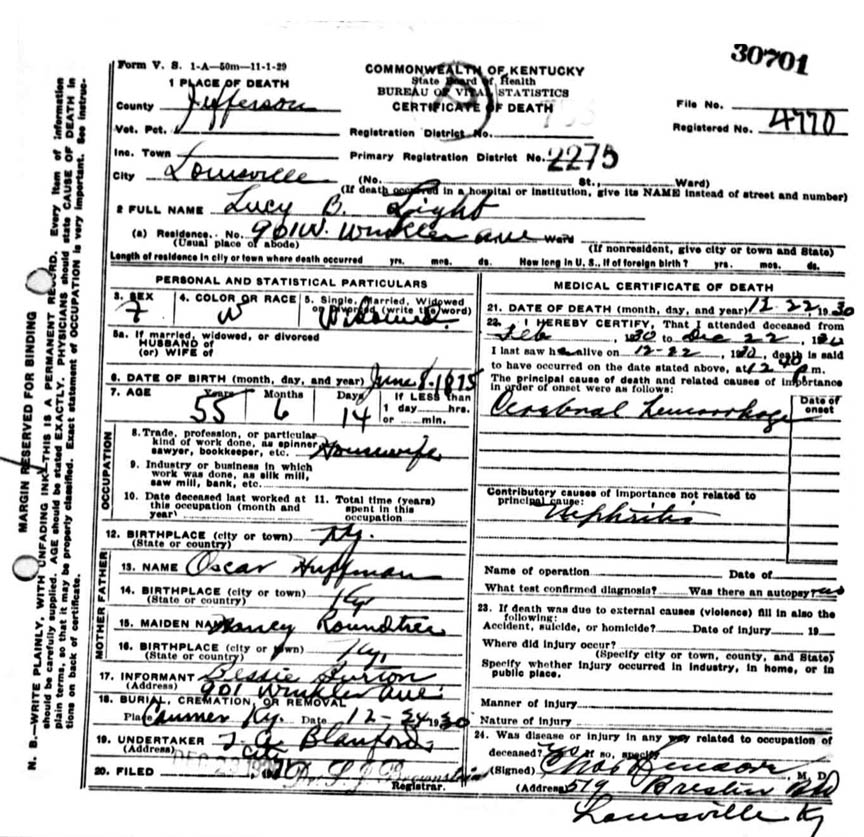 30701
Form V. S. 1-A—50m—11-1-29
COMMONWEALTH OF KENTUCKY
State Board of Health
BUREAU OF VITAL STATISTICS
CERTIFICATE OF DEATH
1 PLACE OF DEATH
County Jefferson
File No.
Registered No. 4770
Vot. Pct.
Registration District No.
Inc. Town
Primary Registration District No. 2275
City Louisville (No. St., Ward)
(If death occurred in a hospital or institution, give its NAME instead of street and number)
2 FULL NAME Lucy B. Light
(a) Residence. No. 901 W. Winkler Ave Ward
(Usual place of abode) (If nonresident, give city or town and State)
Length of residence in city or town where death occurred yrs. mos. ds. How long in U. S., if of foreign birth? yrs. mos. ds.
PERSONAL AND STATISTICAL PARTICULARS
3. SEX 4. COLOR OR RACE 5. Single, Married, Widowed
or Divorced (write the word)
F W Widowed
5a. If married, widowed, or divorced
HUSBAND of
(or) WIFE of
6. DATE OF BIRTH (month, day, and year) June 8-1875
7. AGE Years Months Days If LESS than
1 day hrs.
or min.
55 6 14
OCCUPATION
8. Trade, profession, or particular
kind of work done, as spinner,
sawyer, bookkeeper, etc. Housewife
9. Industry or business in which
work was done, as silk mill,
saw mill, bank, etc.
10. Date deceased last worked at
this occupation (month and
year)
11. Total time (years)
spent in this
occupation
12. BIRTHPLACE (city or town)
(State or country) Ky.
FATHER
13. NAME Oscar Huffman
14. BIRTHPLACE (city or town)
(State or country) Ky
MOTHER
15. MAIDEN NAME Nancy Roundtree
16. BIRTHPLACE (city or town)
(State or country) Ky.
17. INFORMANT Bessie
(Address) 901 Winkler Ave.
18. BURIAL, CREMATION, OR REMOVAL
Place Canmer Ky. Date 12-24 1930
19. UNDERTAKER Blanford
(Address) City
20. FILED DEC 23 19
Registrar.
MEDICAL CERTIFICATE OF DEATH
21. DATE OF DEATH (month, day, and year) 12-22, 1930
22. I HEREBY CERTIFY, That I attended deceased from
Feb, 1930 to Dec 22, 1930
I last saw her alive on 12-22, 1930, death is said
to have occurred on the date stated above, at 12 P m.
The principal cause of death and related causes of importance
in order of onset were as follows:
Date of
onset
Cerebral hemorrhage
Contributory causes of importance not related to
principal cause:
Nephritis
Name of operation Date of
What test confirmed diagnosis? Was there an autopsy
23. If death was due to external causes (violence) fill in also the
following:
Accident, suicide, or homicide? Date of injury 19
Where did injury occur?
(Specify city or town, county, and State)
Specify whether injury occurred in industry, in home, or in
public place.
Manner of injury
Nature of injury
24. Was disease or injury in any way related to occupation of
deceased? If so, specify
(Signed) M. D.
(Address) 519 Breslin Bld
Louisville Ky
MARGIN RESERVED FOR BINDING
N. B.—WRITE PLAINLY, WITH UNFADING INK—THIS IS A PERMANENT RECORD. Every item of information
should be carefully supplied. AGE should be stated EXACTLY. PHYSICIANS should state CAUSE OF DEATH in
plain terms, so that it may be properly classified. Exact statement of OCCUPATION is very important. See instruc-
tions on back of certificate.